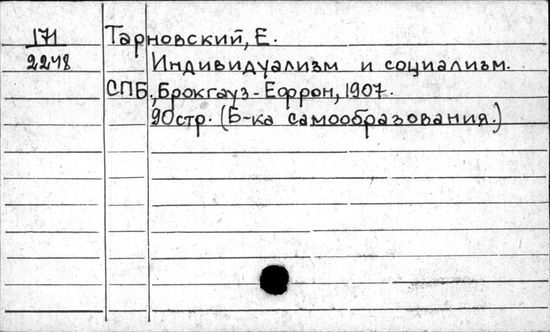 171 Тарновский, Е.
2248 Индивидуализм и социализм.
СПБ., Брокгауз-Ефрон, 1907.
90 стр. (Б-ка самообразования.)